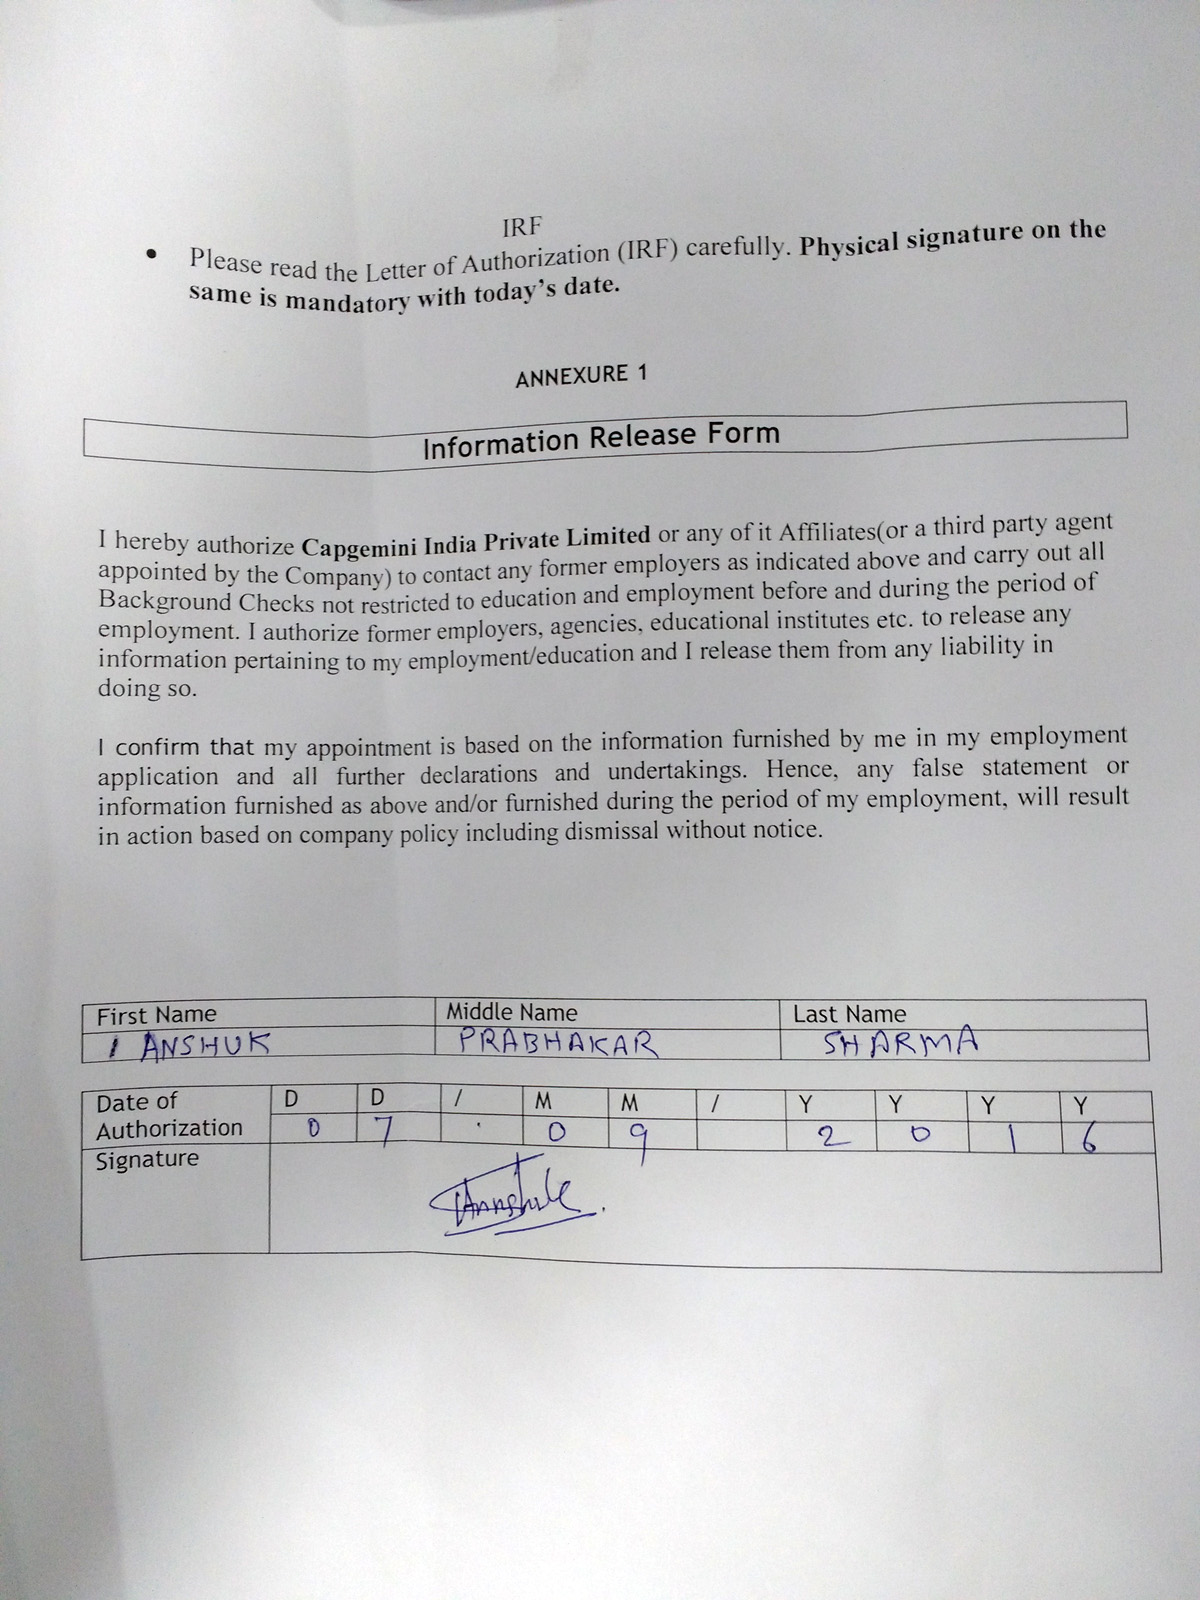 IRF
• Please read the Letter of Authorization (IRF) carefully. Physical signature on the
same is mandatory with today's date.
ANNEXURE 1
Information Release Form
I hereby authorize Capgemini India Private Limited or any of it Affiliates(or a third party agent
appointed by the Company) to contact any former employers as indicated above and carry out all
Background Checks not restricted to education and employment before and during the period of
employment. I authorize former employers, agencies, educational institutes etc. to release any
information pertaining to my employment/education and I release them from any liability in
doing so.
I confirm that my appointment is based on the information furnished by me in my employment
application and all further declarations and undertakings. Hence, any false statement or
information furnished as above and/or furnished during the period of my employment, will result
in action based on company policy including dismissal without notice.
First Name Middle Name Last Name
ANSHUK PRABHAKAR SHARMA
Date of D D / M M / Y Y Y Y
Authorization 0 7 0 9 2 0 1 6
Signature